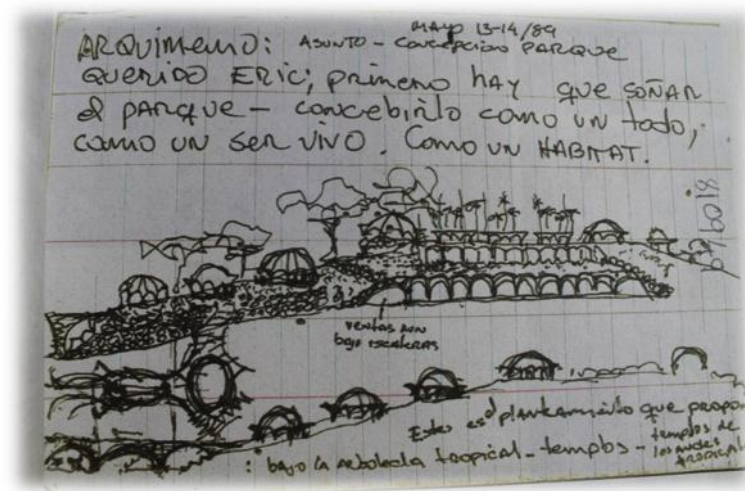 MAYO 13-14/89
ARQUIMEMO: ASUNTO - CONCEPCION PARQUE
QUERIDO ERIC; primero hAY que SOÑAR
el PARQUE - CONCEBIRLO COMO UN todo,
COMO UN SER VIVO. COMO UN HABITAT.
VENTAS
bajo escaleras
Este es el planteamiento que propo
: bajo la arboleda tropical - templos - templos de
los andes
TROPICAL